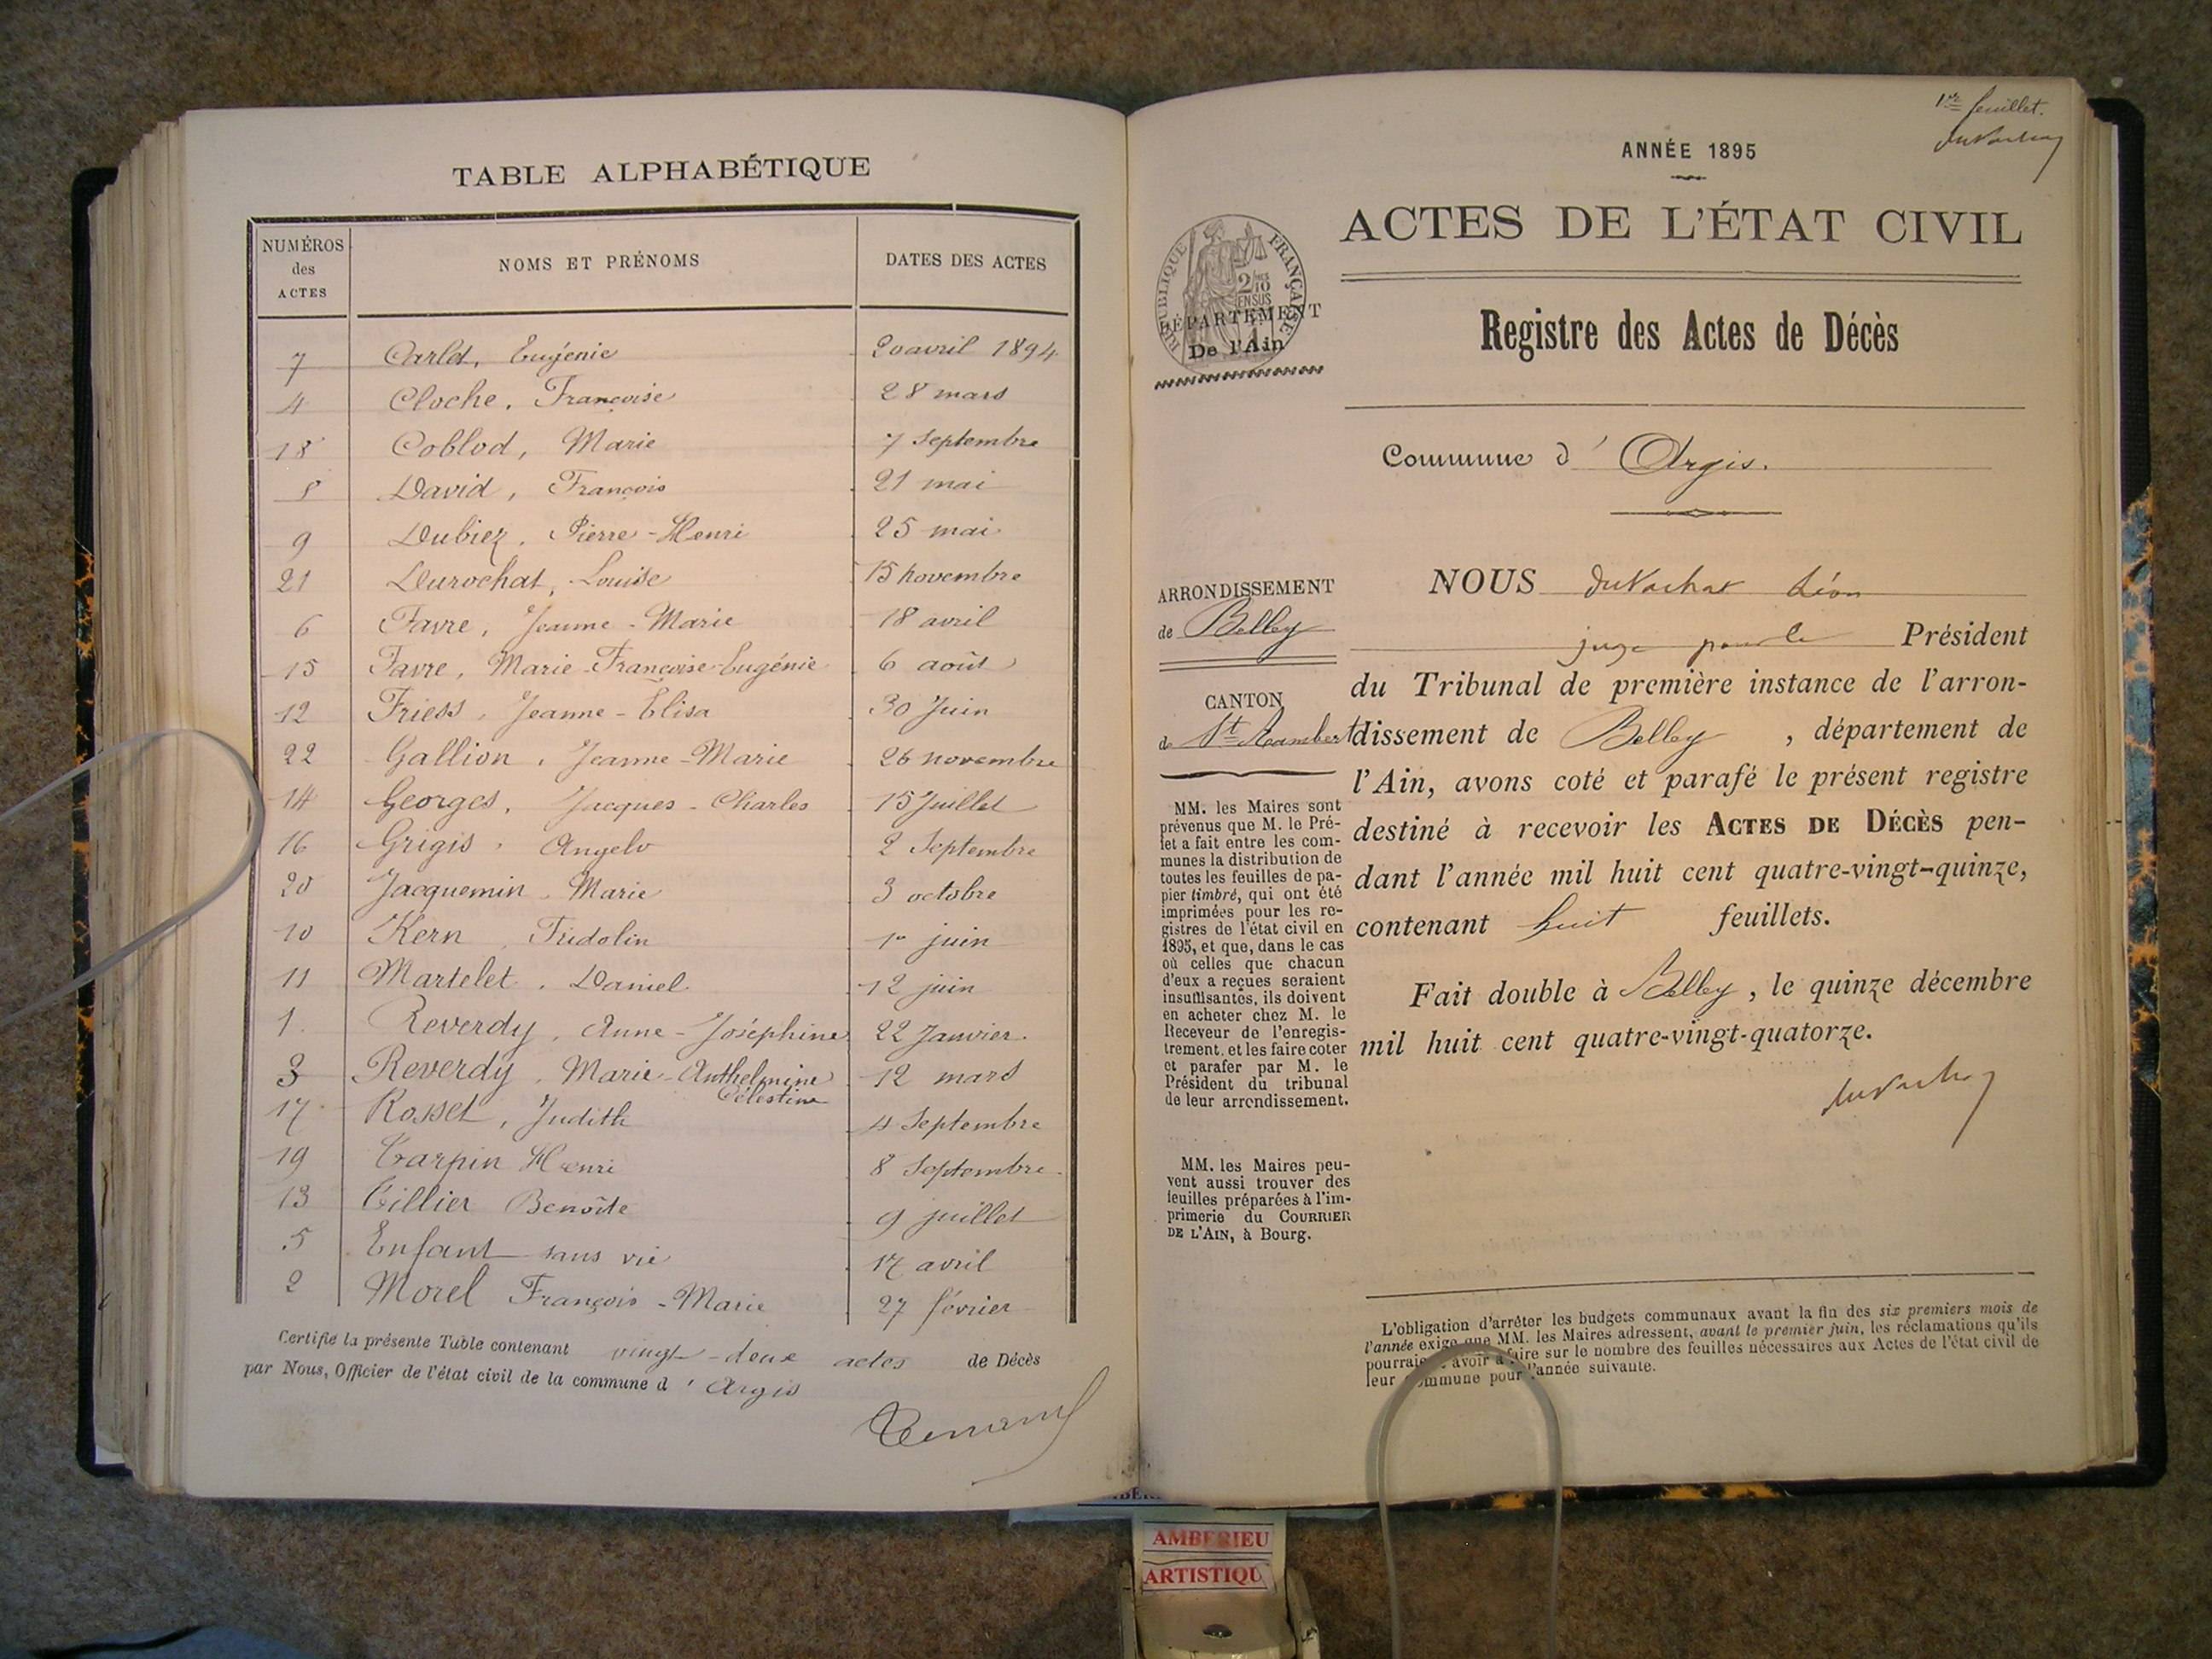 TABLE ALPHABÉTIQUE
NUMÉROS des ACTES
NOMS ET PRÉNOMS
DATES DES ACTES
7 Carlet, Eugénie 20 avril 1894
4 Cloche, Françoise 28 mars
18 Coblod, Marie 7 Septembre
8 David, François 21 mai
9 Dubiez, Pierre-Henri 25 mai
21 Durochat, Louise 15 novembre
6 Favre, Jeanne-Marie 18 avril
15 Favre, Marie-Françoise-Eugénie 6 août
12 Friess, Jeanne-Elisa 30 Juin
22 Gallion, Jeanne-Marie 26 novembre
14 Georges, Jacques-Charles 15 Juillet
16 Grigis, Angelo 2 Septembre
20 Jacquemin, Marie 3 octobre
10 Kern, Fridolin 1er juin
11 Martelet, Daniel 12 juin
1 Reverdy, Anne-Joséphine 22 Janvier
3 Reverdy, Marie-Anthelmine 12 mars
Célestine
17 Rosset, Judith 4 Septembre
19 Tarpin Henri 8 Septembre
13 Tillier Benoîte 9 juillet
5 Enfant sans vie 17 avril
2 Morel François-Marie 27 février
Certifié la présente Table contenant vingt-deux actes de Décès
par Nous, Officier de l'état civil de la commune d'Argis
1er feuillet.
ANNÉE 1895
ACTES DE L'ÉTAT CIVIL
RÉPUBLIQUE FRANÇAISE
2/10 EN SUS
DÉPARTEMENT
De l'Ain
Registre des Actes de Décès
Commune d'Argis.
ARRONDISSEMENT
de Belley
CANTON
de St Rambert
MM. les Maires sont
prévenus que M. le Pré-
fet a fait entre les com-
munes la distribution de
toutes les feuilles de pa-
pier timbré, qui ont été
imprimées pour les re-
gistres de l'état civil en
1895, et que, dans le cas
où celles que chacun
d'eux a reçues seraient
insuffisantes, ils doivent
en acheter chez M. le
Receveur de l'enregis-
trement, et les faire coter
et parafer par M. le
Président du tribunal
de leur arrondissement.
MM. les Maires peu-
vent aussi trouver des
feuilles préparées à l'im-
primerie du COURRIER
DE L'AIN, à Bourg.
NOUS Duvachat Léon
juge pour le Président
du Tribunal de première instance de l'arron-
dissement de Belley, département de
l'Ain, avons coté et parafé le présent registre
destiné à recevoir les ACTES DE DÉCÈS pen-
dant l'année mil huit cent quatre-vingt-quinze,
contenant huit feuillets.
Fait double à Belley, le quinze décembre
mil huit cent quatre-vingt-quatorze.
L'obligation d'arrêter les budgets communaux avant la fin des six premiers mois de
l'année exige que MM. les Maires adressent, avant le premier juin, les réclamations qu'ils
pourraient avoir à faire sur le nombre des feuilles nécessaires aux Actes de l'état civil de
leur commune pour l'année suivante.
AMBERIEU
ARTISTIQU